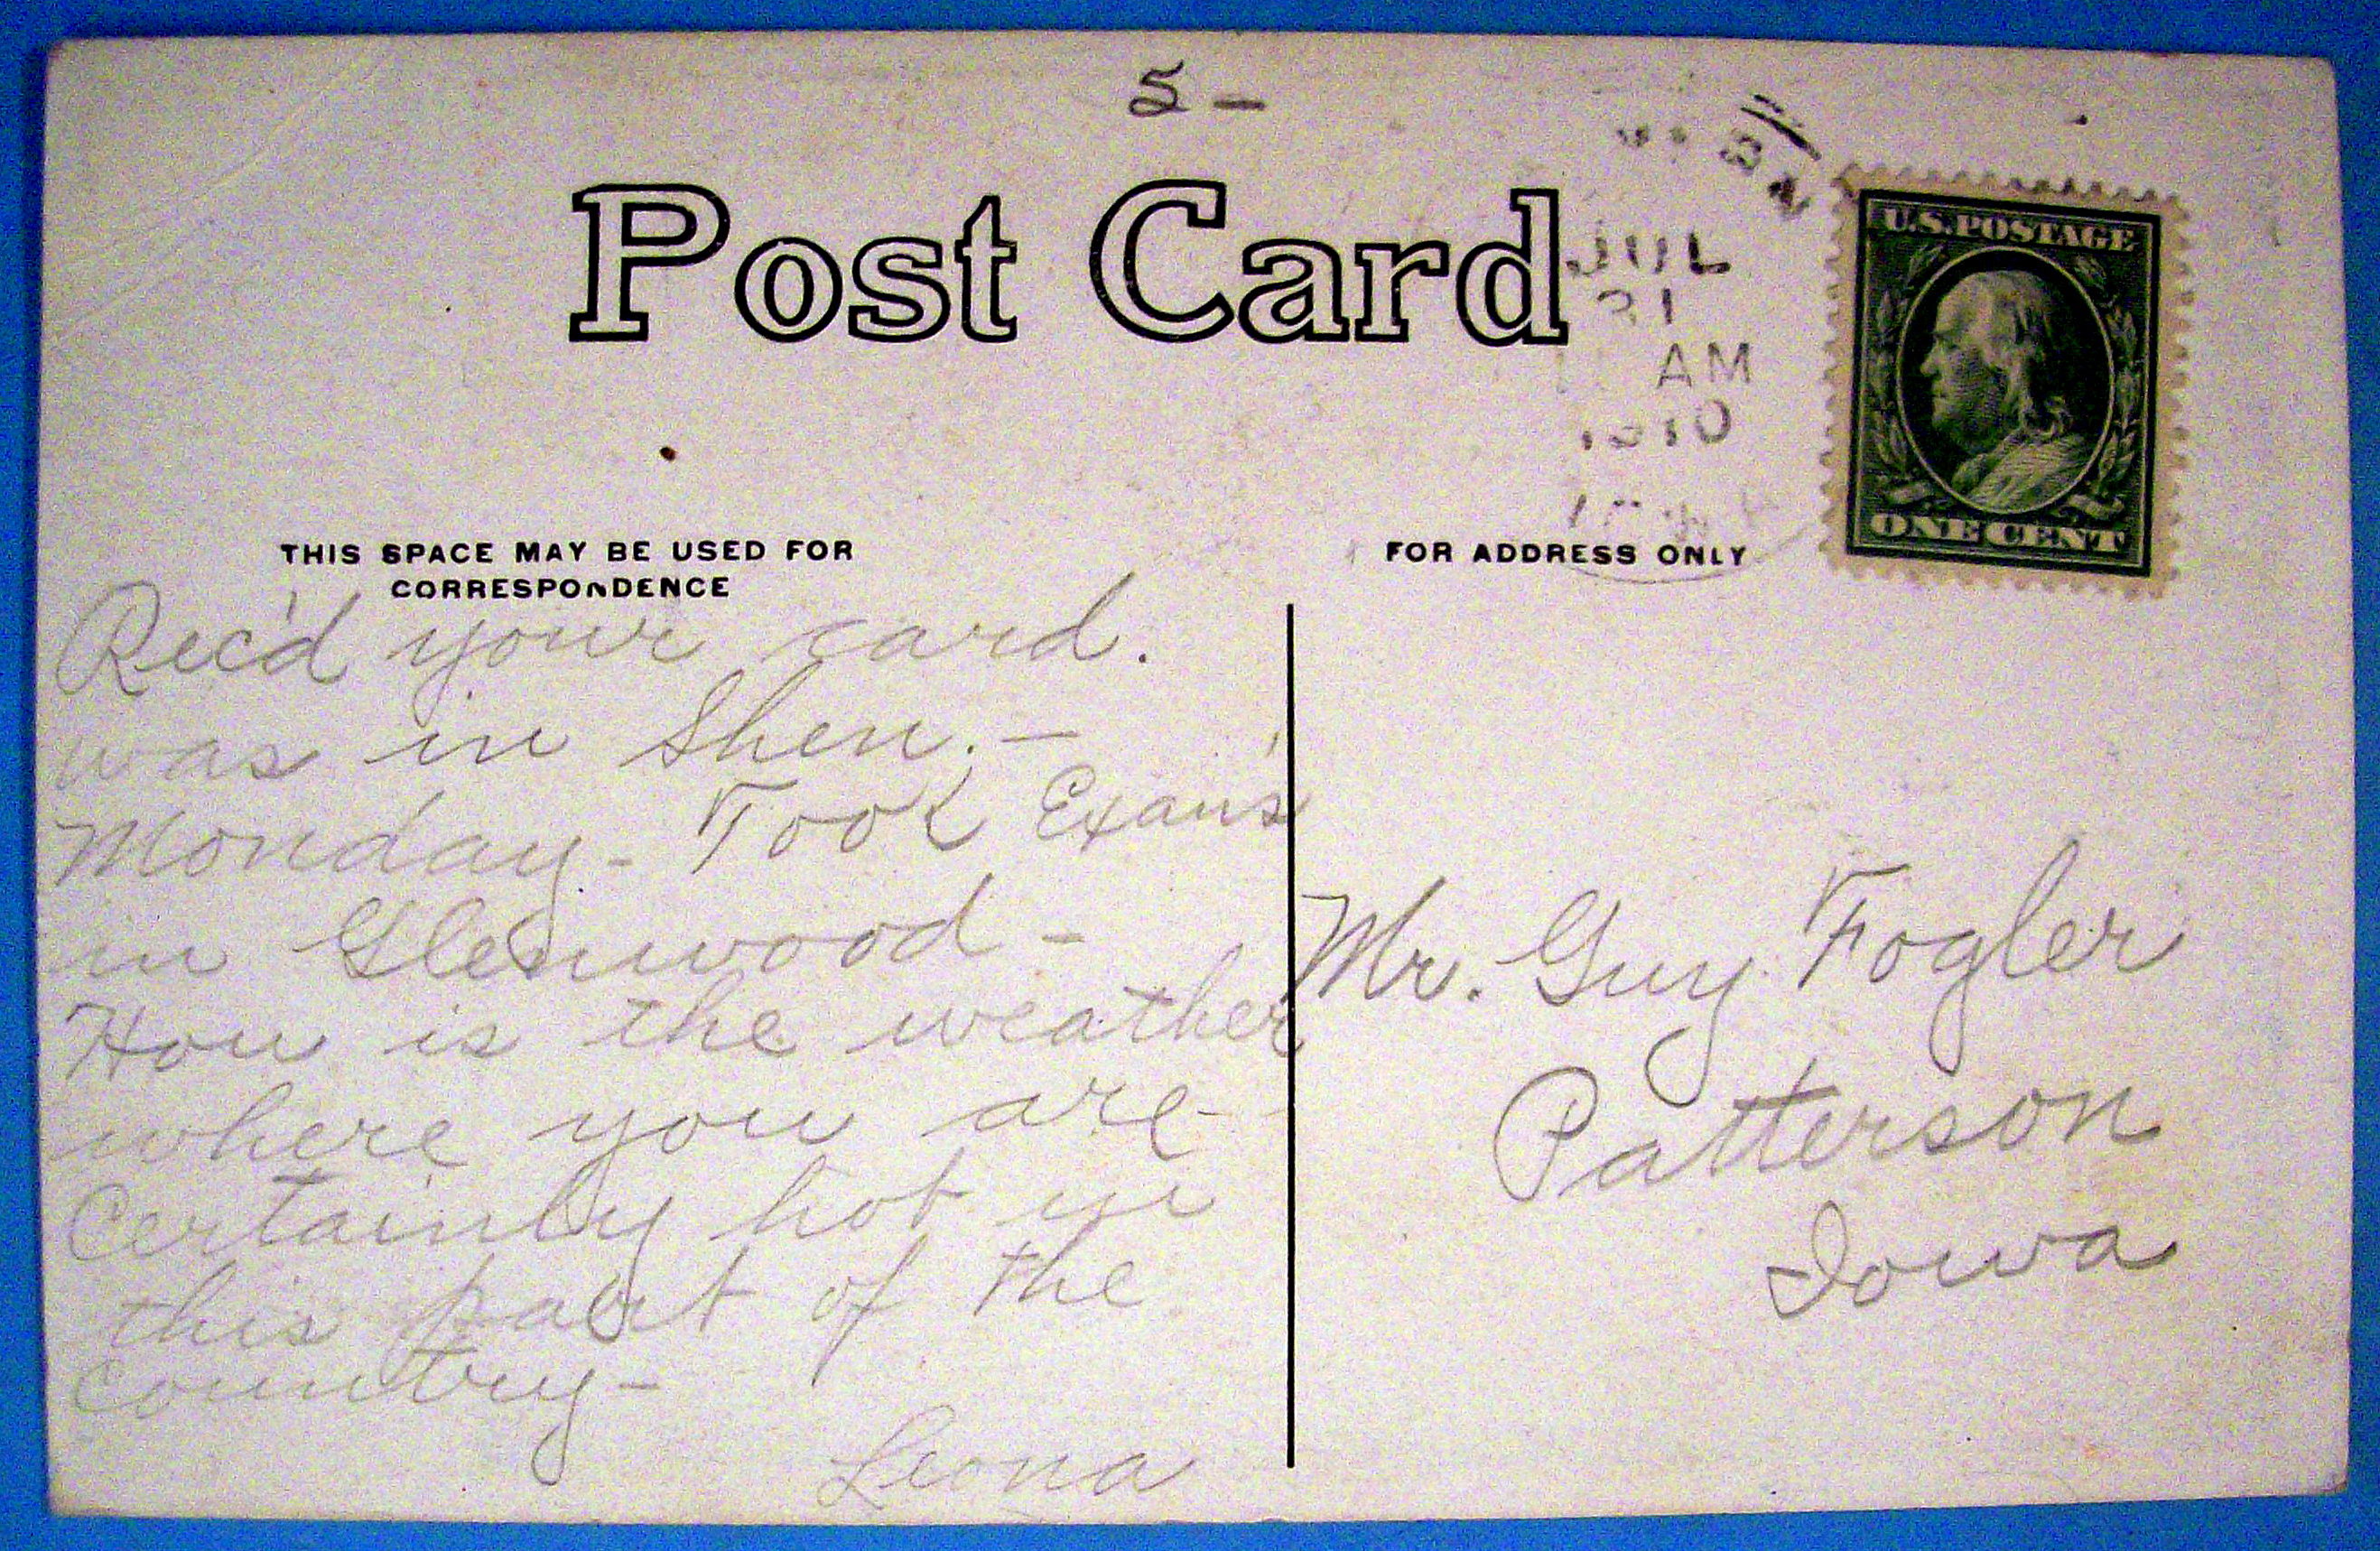 5 –
Post Card
JUL
31
AM
1910
U.S. POSTAGE
ONE CENT
THIS SPACE MAY BE USED FOR
CORRESPONDENCE
FOR ADDRESS ONLY
Rec'd your card.
was in Shen. –
Monday – Took Exam's
in Glenwood –
How is the weather
where you are –
Certainly hot in
this part of the
country –
Leona
Mr. Guy Fogler
Patterson
Iowa